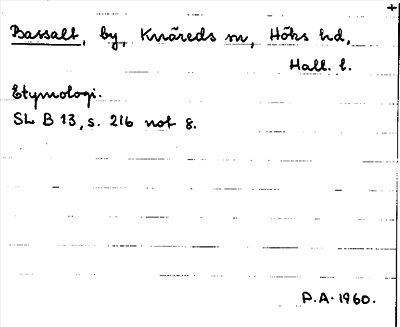 Bassalt, by, Knäreds sn, Höks hd,
Hall. l.
Etymologi.
SL B 13, s. 216 not 8.
P.A. 1960.